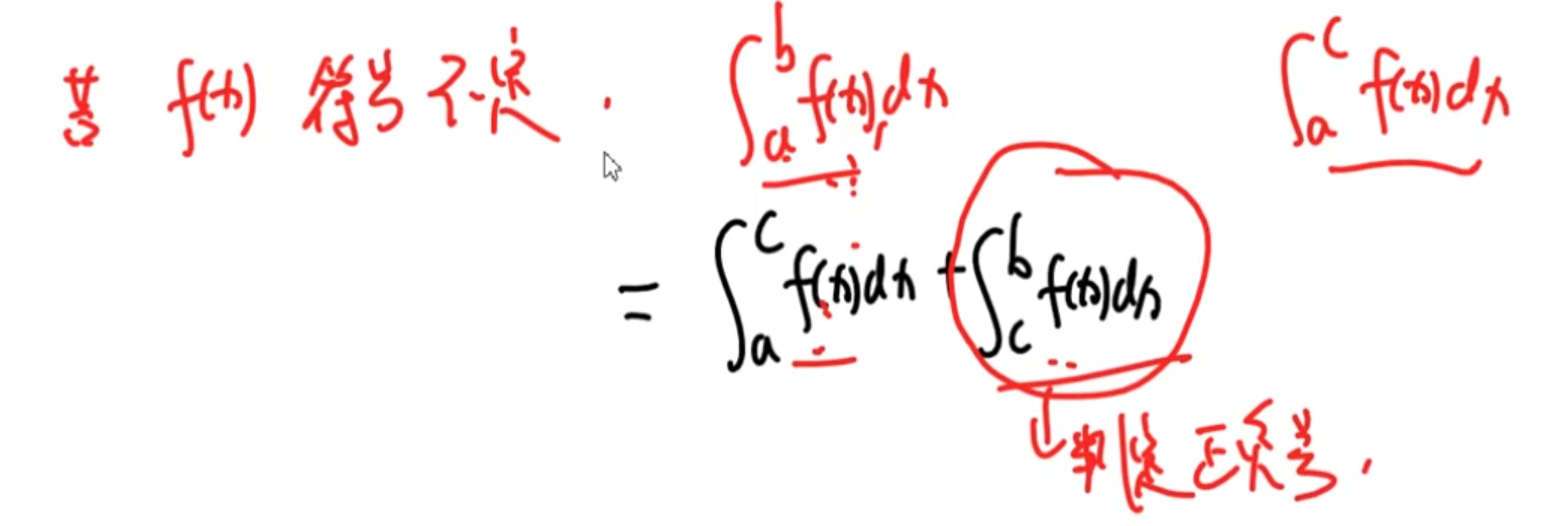 若 f(x) 符号不定. ∫_a^b f(x)dx ∫_a^c f(x)dx
= ∫_a^c f(x)dx + ∫_c^b f(x)dx
↓判定正负号.